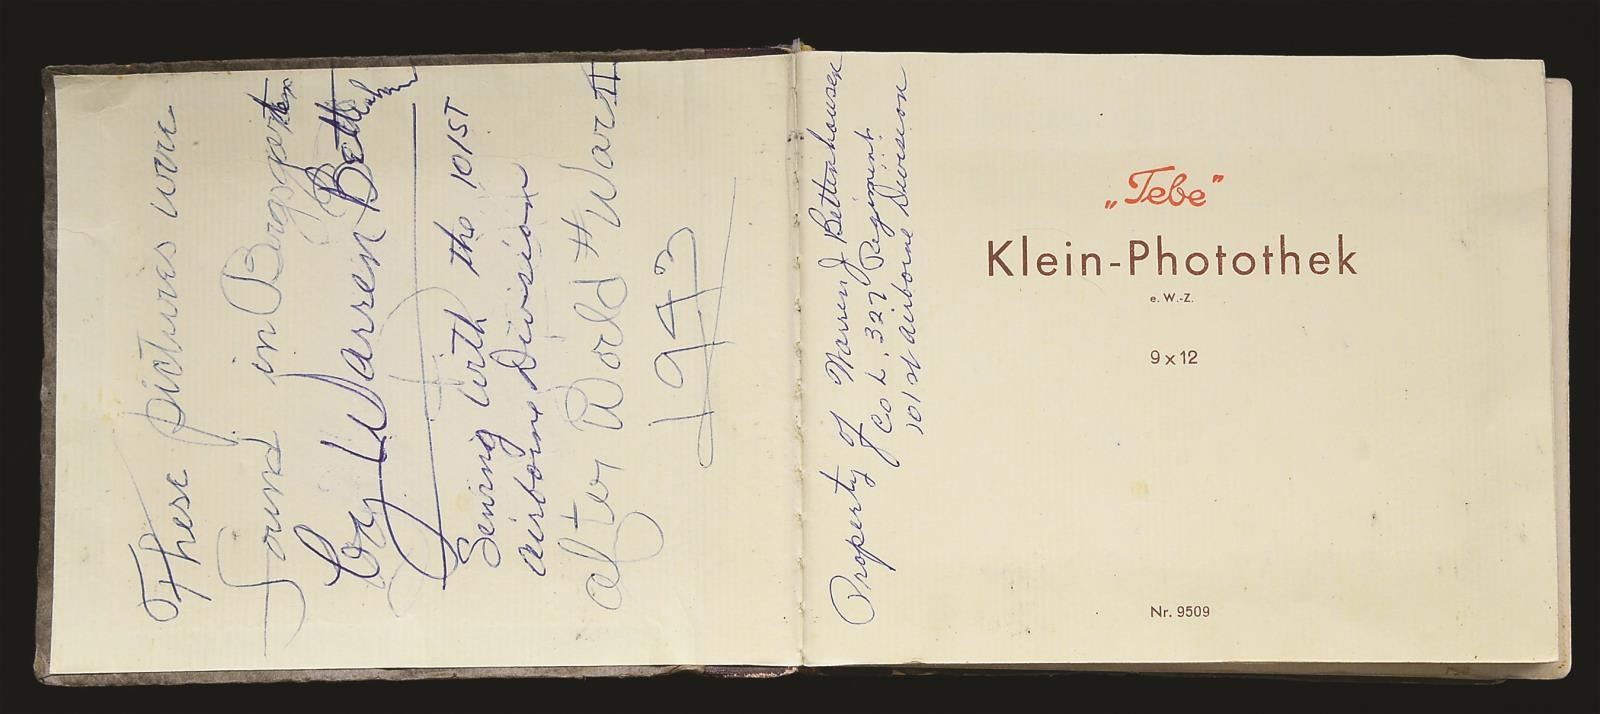 These pictures were
found in
by Warren
Serving with the 101ST
airborne Division
after World War II
1945
Property of Warren J Bettenhausen
Co L. 327 Regiment.
101st airborne Division
„Tebe”
Klein-Photothek
e. W.-Z.
9 x 12
Nr. 9509